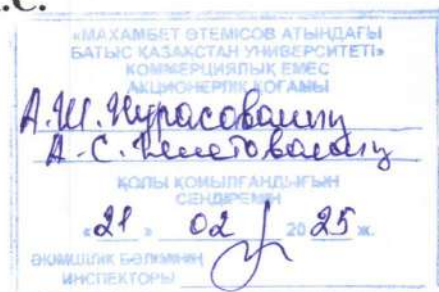 С.
«МАХАМБЕТ ӨТЕМІСОВ АТЫНДАҒЫ
БАТЫС ҚАЗАҚСТАН УНИВЕРСИТЕТІ»
КОММЕРЦИЯЛЫҚ ЕМЕС
АКЦИОНЕРЛІК ҚОҒАМЫ
А.Ш. Нурасованың
А.С.
ҚОЛЫ ҚОЙЫЛҒАНДЫҒЫН
СЕНДІРЕМІН
«21» 02 2025 ж.
ӘКІМШІЛІК БӨЛІМІНІҢ
ИНСПЕКТОРЫ